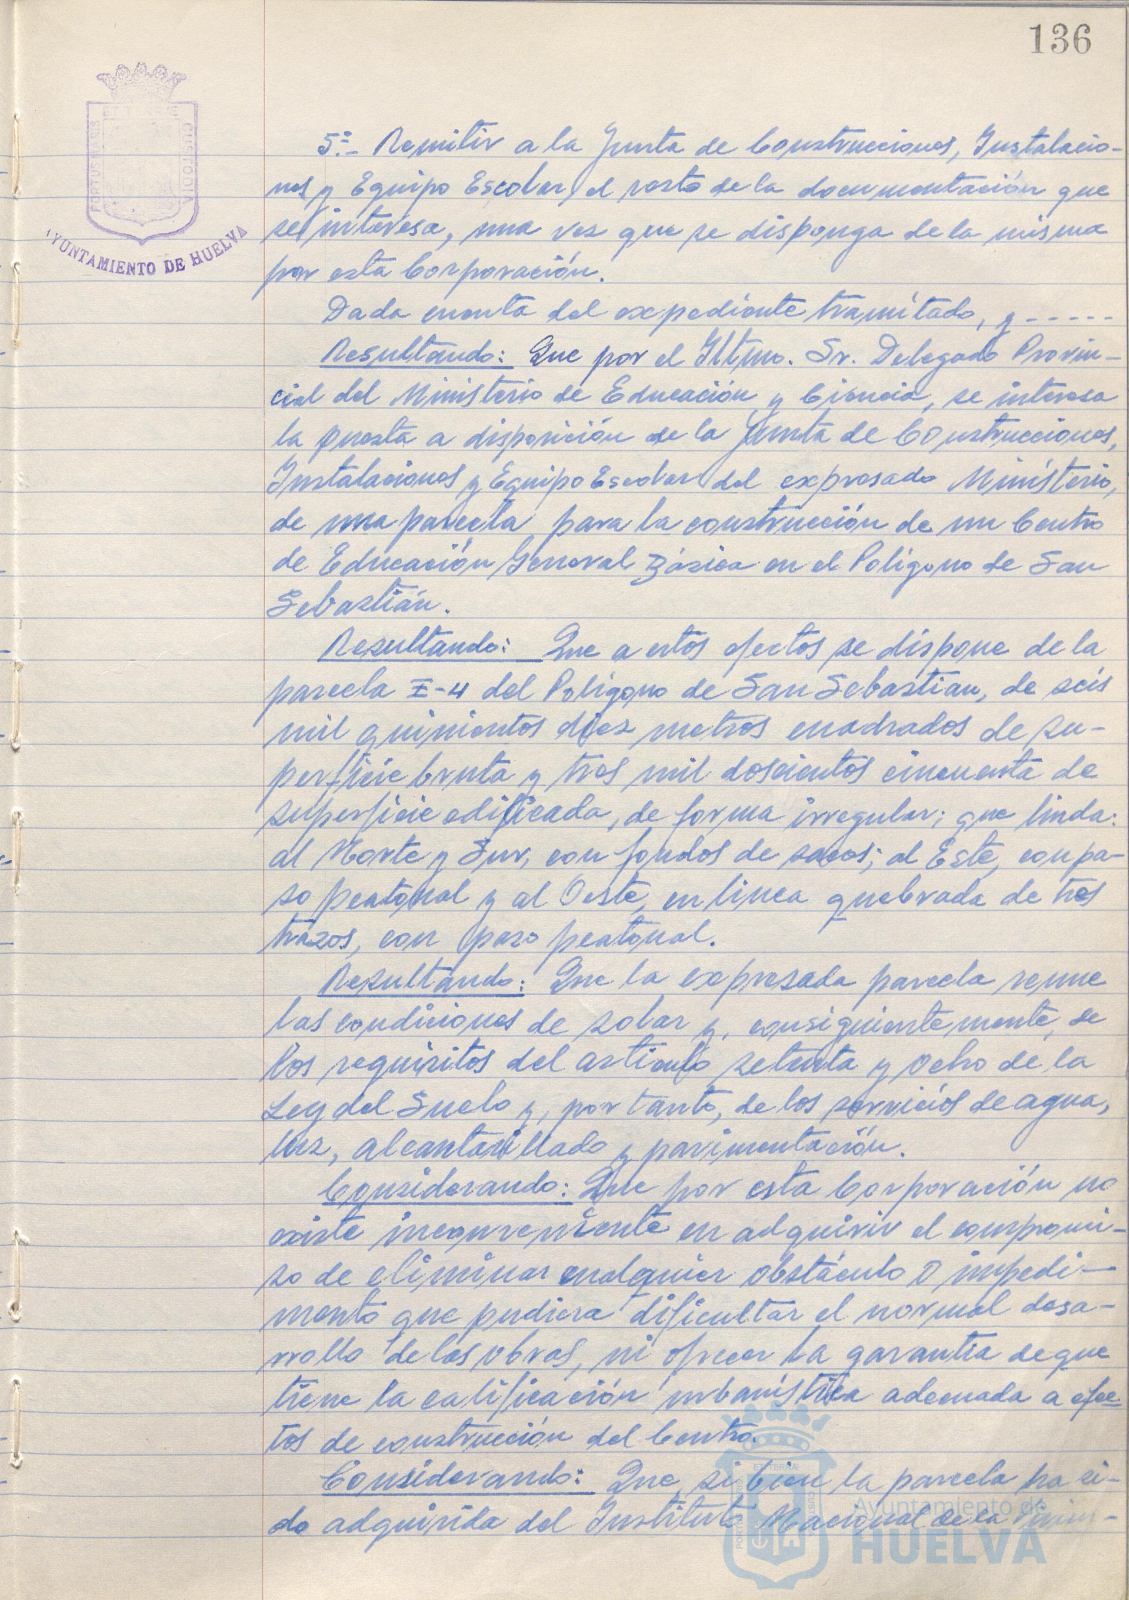 136
PORTUS MARIS
CUSTODIA
AYUNTAMIENTO DE HUELVA
5º.- Remitir a la Junta de Construcciones, Instalacio-
nes y Equipo Escolar, el resto de la documentación que
se interesa, una vez que se disponga de la misma
por esta Corporación.
Dada cuenta del expediente tramitado, y -----
Resultando: Que por el Iltmo. Sr. Delegado Provin-
cial del Ministerio de Educación y Ciencia, se interesa
la puesta a disposición de la Junta de Construcciones,
Instalaciones y Equipo Escolar del expresado Ministerio,
de una parcela para la construcción de un Centro
de Educación General Básica en el Polígono de San
Sebastián.
Resultando: Que a estos efectos se dispone de la
parcela E-4 del Polígono de San Sebastian, de seis
mil quinientos diez metros cuadrados de su-
perficie bruta y tres mil doscientos cincuenta de
superficie edificada, de forma irregular; que linda:
al Norte y Sur, con fondos de sacos; al Este, con pa-
so peatonal y al Oeste, en linea quebrada de tres
trazos, con paso peatonal.
Resultando: Que la expresada parcela reune
las condiciones de solar y, consiguientemente, de
los requisitos del artículo setenta y ocho de la
Ley del Suelo y, por tanto, de los servicios de agua,
luz, alcantarillado y pavimentación.
Considerando: Que por esta Corporación no
existe inconveniente en adquirir el compromi-
so de eliminar cualquier obstáculo o impedi-
mento que pudiera dificultar el normal desa-
rrollo de las obras, ni ofrecer la garantía de que
tiene la calificación urbanística adecuada a efec-
tos de construcción del Centro.
Considerando: Que, si bien la parcela ha si-
do adquirida del Instituto Nacional de la
Ayuntamiento de
HUELVA